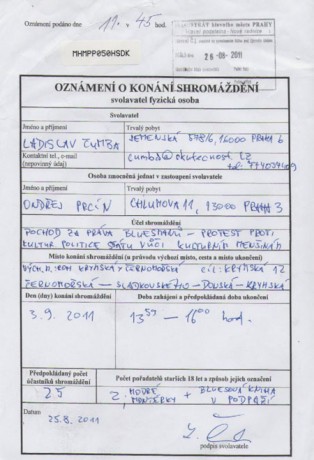 Oznámení podáno dne 11:45 hod.
MHMPP050HSDK
26-08-2011
OZNÁMENÍ O KONÁNÍ SHROMÁŽDĚNÍ
svolavatel fyzická osoba
Svolavatel
Jméno a příjmení
Trvalý pobyt
LADISLAV ZUMBA
JEMENSKÁ 578/6, 16000 PRAHA 6
Kontaktní tel., e-mail
(nepovinný údaj)
Osoba zmocněná jednat v zastoupení svolavatele
Jméno a příjmení
Trvalý pobyt
ONDŘEJ PRCÍN
CHLUMOVA 11, 13000 PRAHA 3
Účel shromáždění
POCHOD ZA PRÁVA BLUESMANŮ - PROTEST PROTI
KULTUR. POLITICE STÁTU VŮČI KULTURNÍM MENŠINÁM
Místo konání shromáždění (u průvodu výchozí místo, cesta a místo ukončení)
VÝCH. M. ROH KRYMSKÁ X ČERNOMOŘSKÁ CÍL: KRYMSKÁ 12
ČERNOMOŘSKÁ - SLADKOVSKÉHO - DONSKÁ - KRYMSKÁ
Den (dny) konání shromáždění
Doba zahájení a předpokládaná doba ukončení
3.9. 2011
13 59 - 16 00 hod.
Předpokládaný počet
účastníků shromáždění
Počet pořadatelů starších 18 let a způsob jejich označení
25
2 MODRÉ MANŽERKY + BLUESOVÁ KNIHA V PODPAŽÍ
Datum
25.8.2011
podpis svolavatele